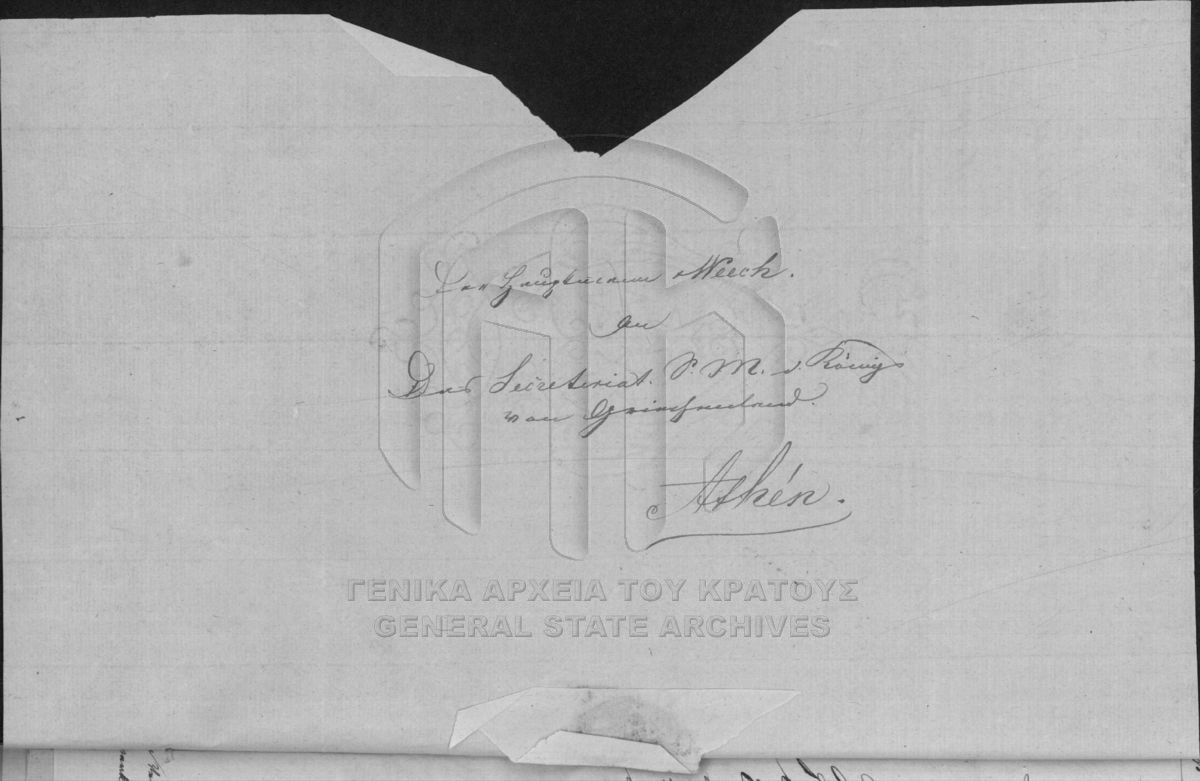 Der Hauptmann Weech.
An
Das Secretariat S. M. d. Königs
von Griechenland.
Athén.
ΓΕΝΙΚΑ ΑΡΧΕΙΑ ΤΟΥ ΚΡΑΤΟΥΣ
GENERAL STATE ARCHIVES